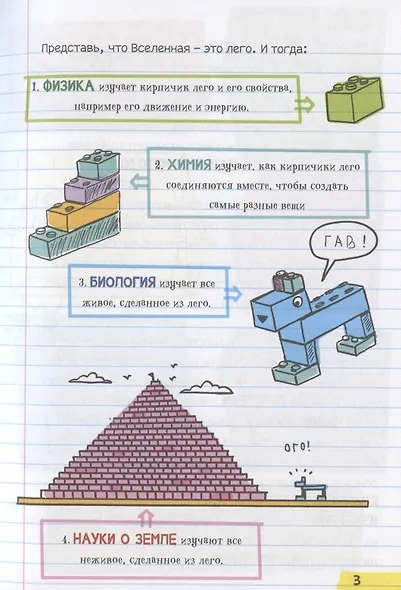 Представь, что Вселенная – это лего. И тогда:
1. ФИЗИКА изучает кирпичик лего и его свойства,
например его движение и энергию.
2. ХИМИЯ изучает, как кирпичики лего
соединяются вместе, чтобы создать
самые разные вещи
ГАВ!
3. БИОЛОГИЯ изучает все
живое, сделанное из лего.
ОГО!
4. НАУКИ О ЗЕМЛЕ изучают все
неживое, сделанное из лего.
3